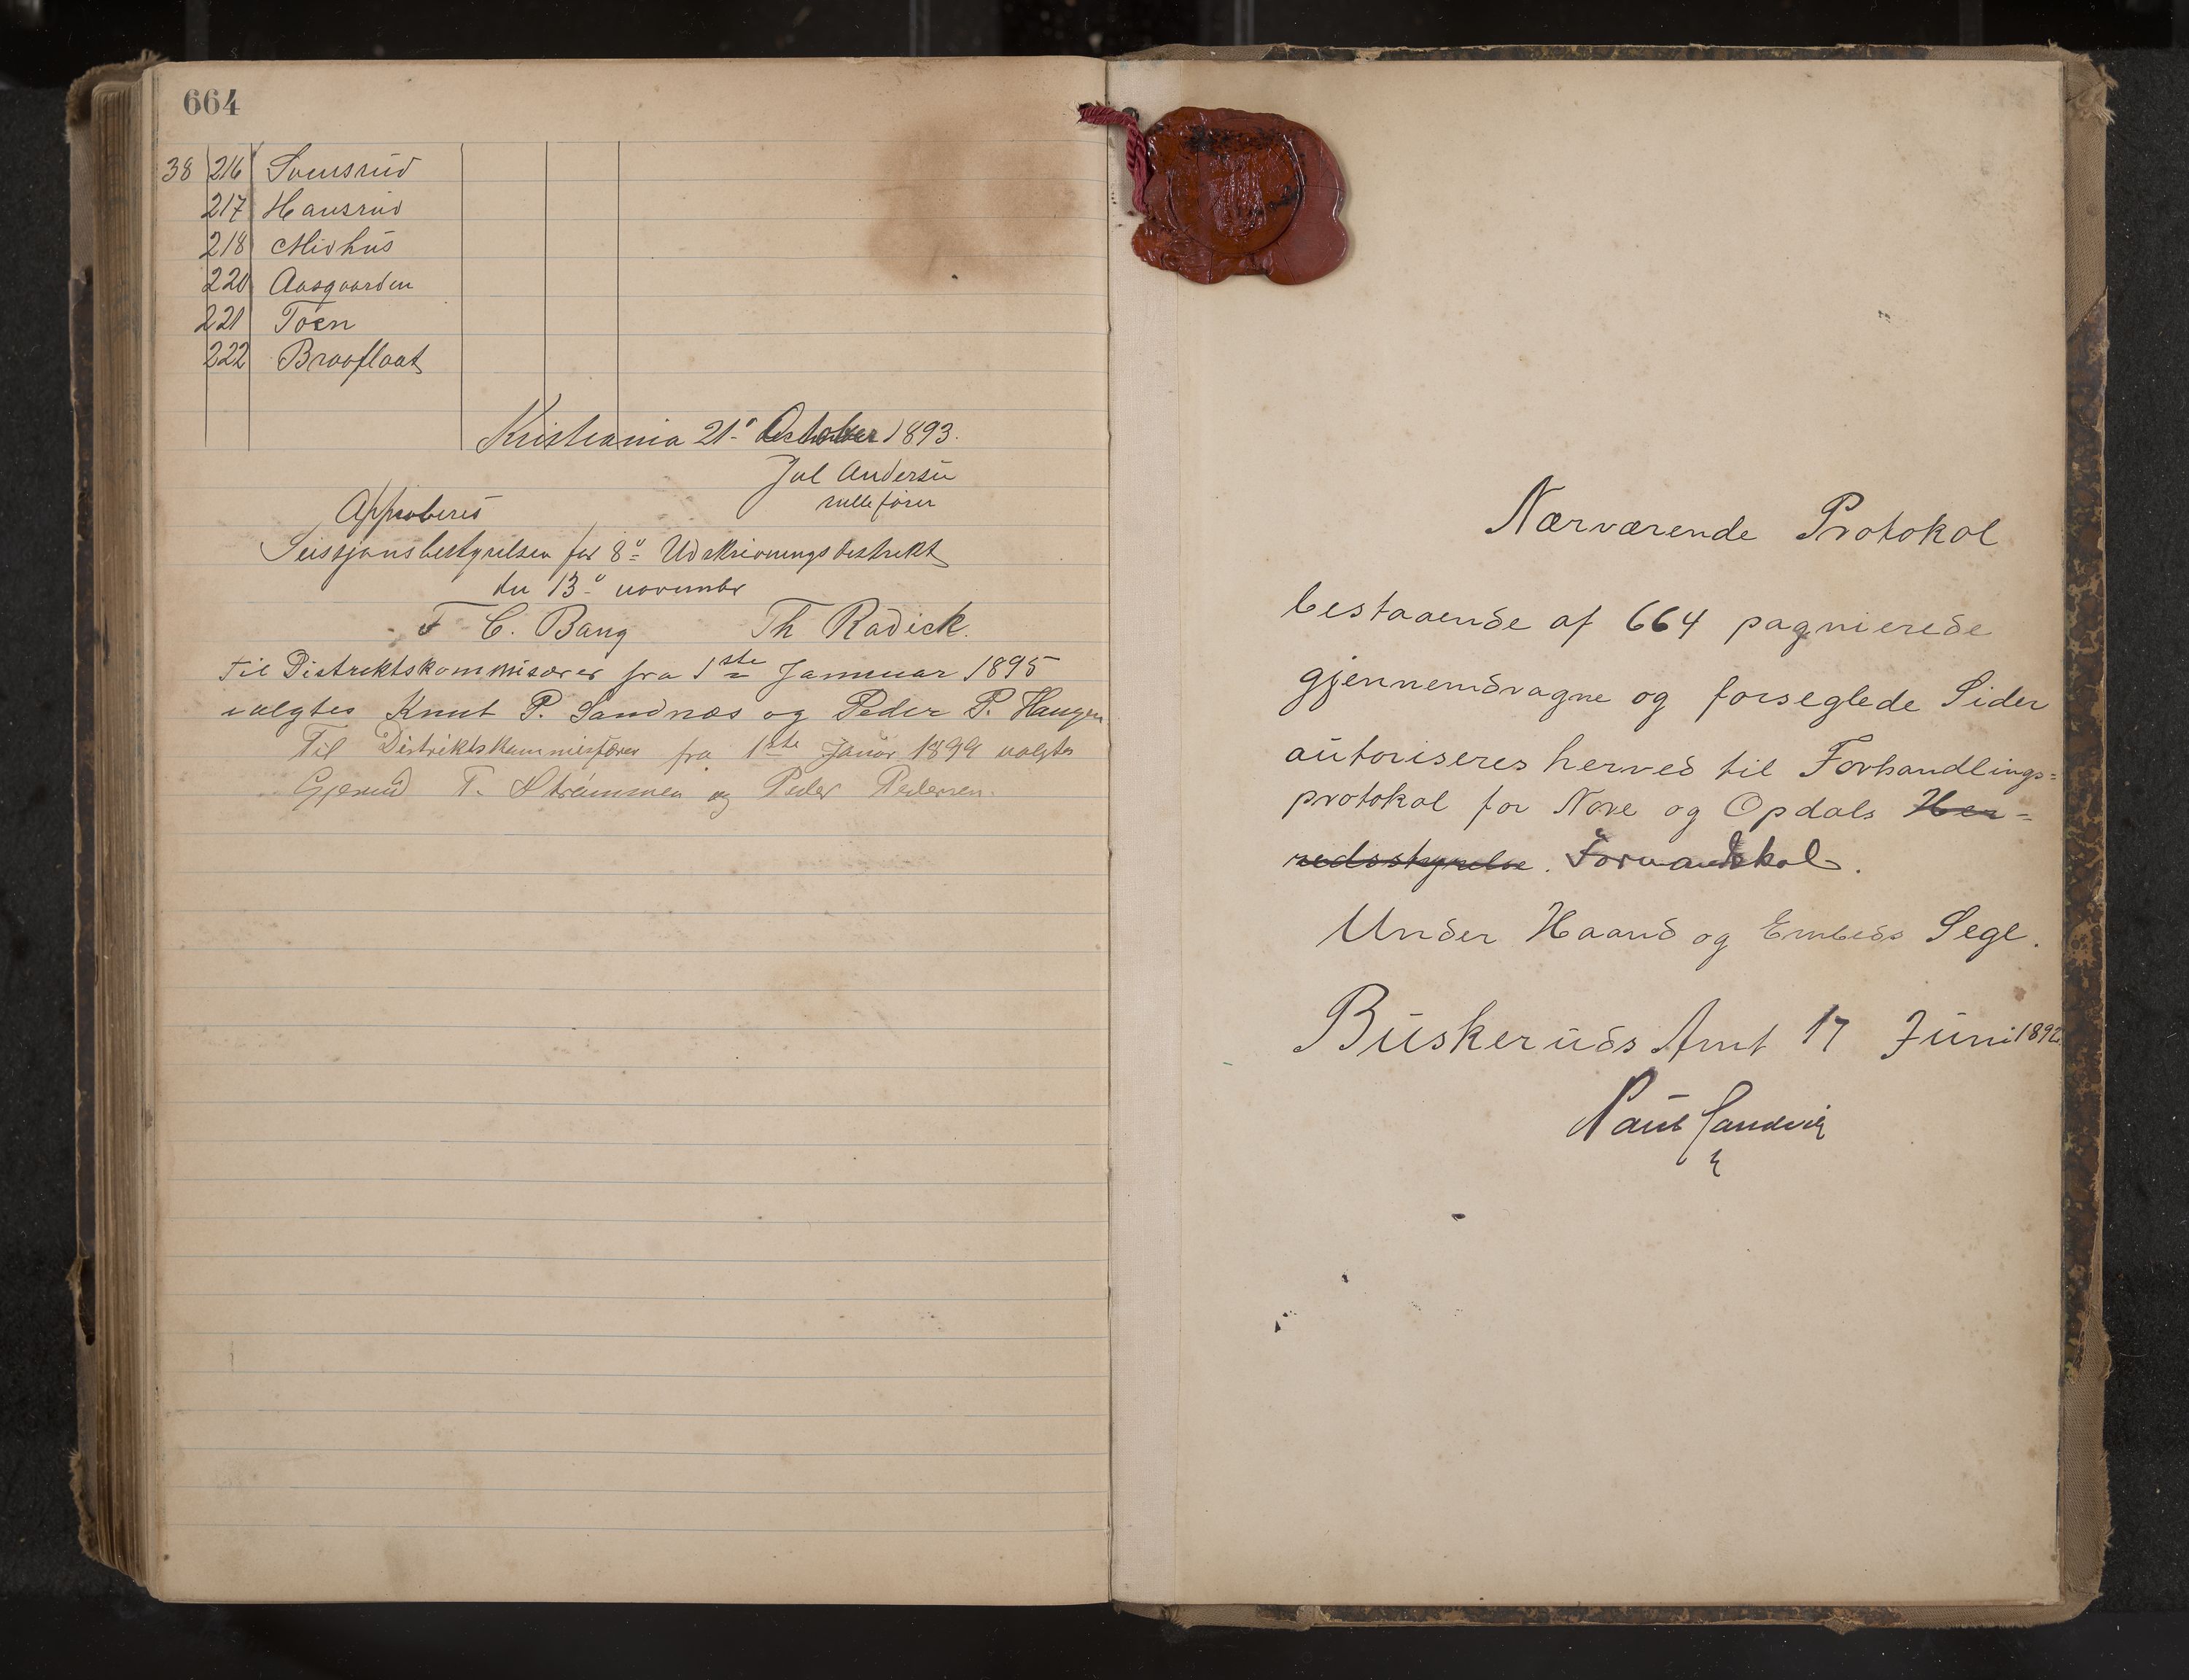 664
38 216 Svensrud
217 Hansrud
218 Midhus
220 Aasgaarden
221 Toen
222 Braaflaat
Kristiania 21° October 1893.
Jul Andersen
rullefører
Approberes
Sessjonsbestyrelsen for 8° Udskrivningsdistrikt
den 13° november
F C. Bang Th Radick.
Til Distriktskommisærer fra 1ste Januar 1895
valgtes Knut P. Sandnæs og Peder P. Haugen
Til Distriktskommisærer fra 1ste Januar 1899 valgtes
T. Strømmen og Peder Pedersen.
Nærværende Protokol
bestaaende af 664 pagnierede
gjennemdragne og forseglede Sider
autoriseres herved til Forhandlings=
protokol for Nore og Opdals Her=
redsstyrelse. Formandskab.
Under Haand og Embeds Segl.
Buskeruds Amt 17 Juni 1892.